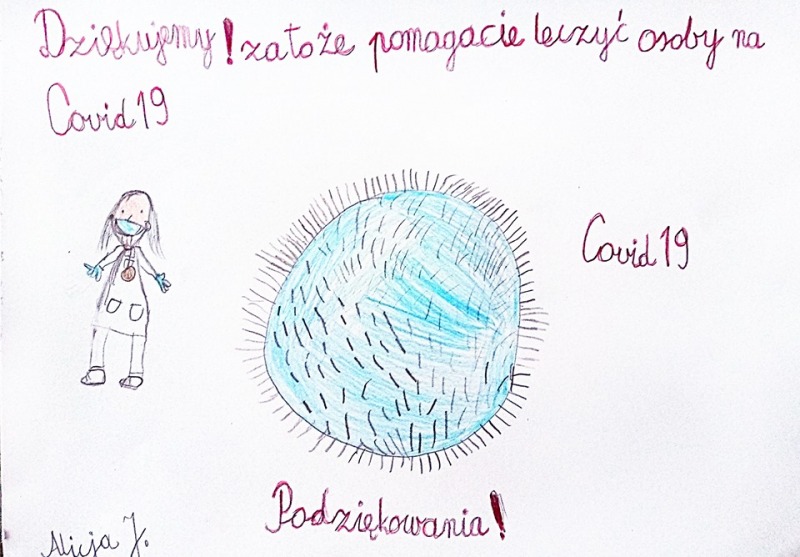 Dziękujemy! zatoże pomagacie leczyć osoby na
Covid19
Covid19
Podziękowania!
Alicja J.